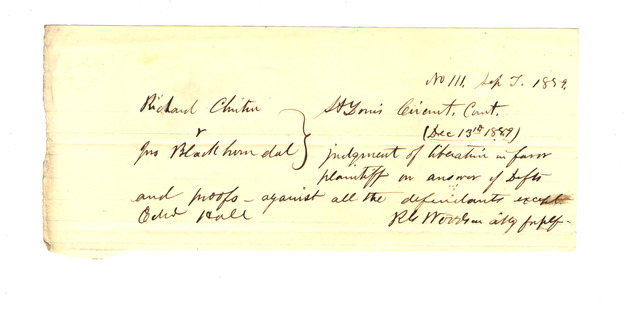 No 111. Sep T. 1859.
Richard Clinton St Louis Circuit Court.
v (Dec 13th 1859)
Jno Blackburn et al judgment of liberation in favor
plaintiff on answer of Defts
and proofs - against all the defendants except
Edwd Hall R W Woodson atty for plff-